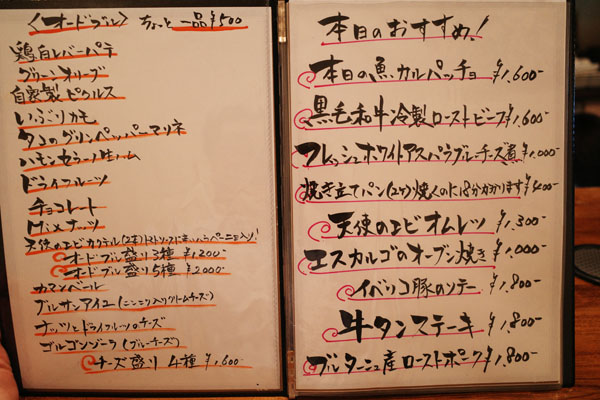 〈オードブル〉 ちょっと一品 ¥500
鶏白レバーパテ
グリーンオリーブ
自家製ピクルス
いぶりカモ
タコのグリンペッパーマリネ
ハモンセラーノ生ハム
ドライフルーツ
チョコレート
Mixナッツ
天使のエビカクテル(2本)
オードブル盛り3種 ¥1,200-
オードブル盛り5種 ¥2,000-
カマンベール
ブルサンアイユ(ニンニク入りクリームチーズ)
ナッツとドライフルーツのチーズ
ゴルゴンゾーラ(ブルーチーズ)
チーズ盛り 4種 ¥1,600-
本日のおすすめ!
本日の魚カルパッチョ ¥1,600-
黒毛和牛冷製ローストビーフ ¥1,600-
フレッシュホワイトアスパラブルーチーズ煮 ¥1,000-
焼き立てパン(2ケ)焼くのに18分かかります ¥400-
天使のエビオムレツ ¥1,300-
エスカルゴのオーブン焼き ¥1,000-
イベリコ豚のソテー ¥1,800-
牛タンステーキ ¥1,800-
ブルターニュ産ローストポーク ¥1,800-